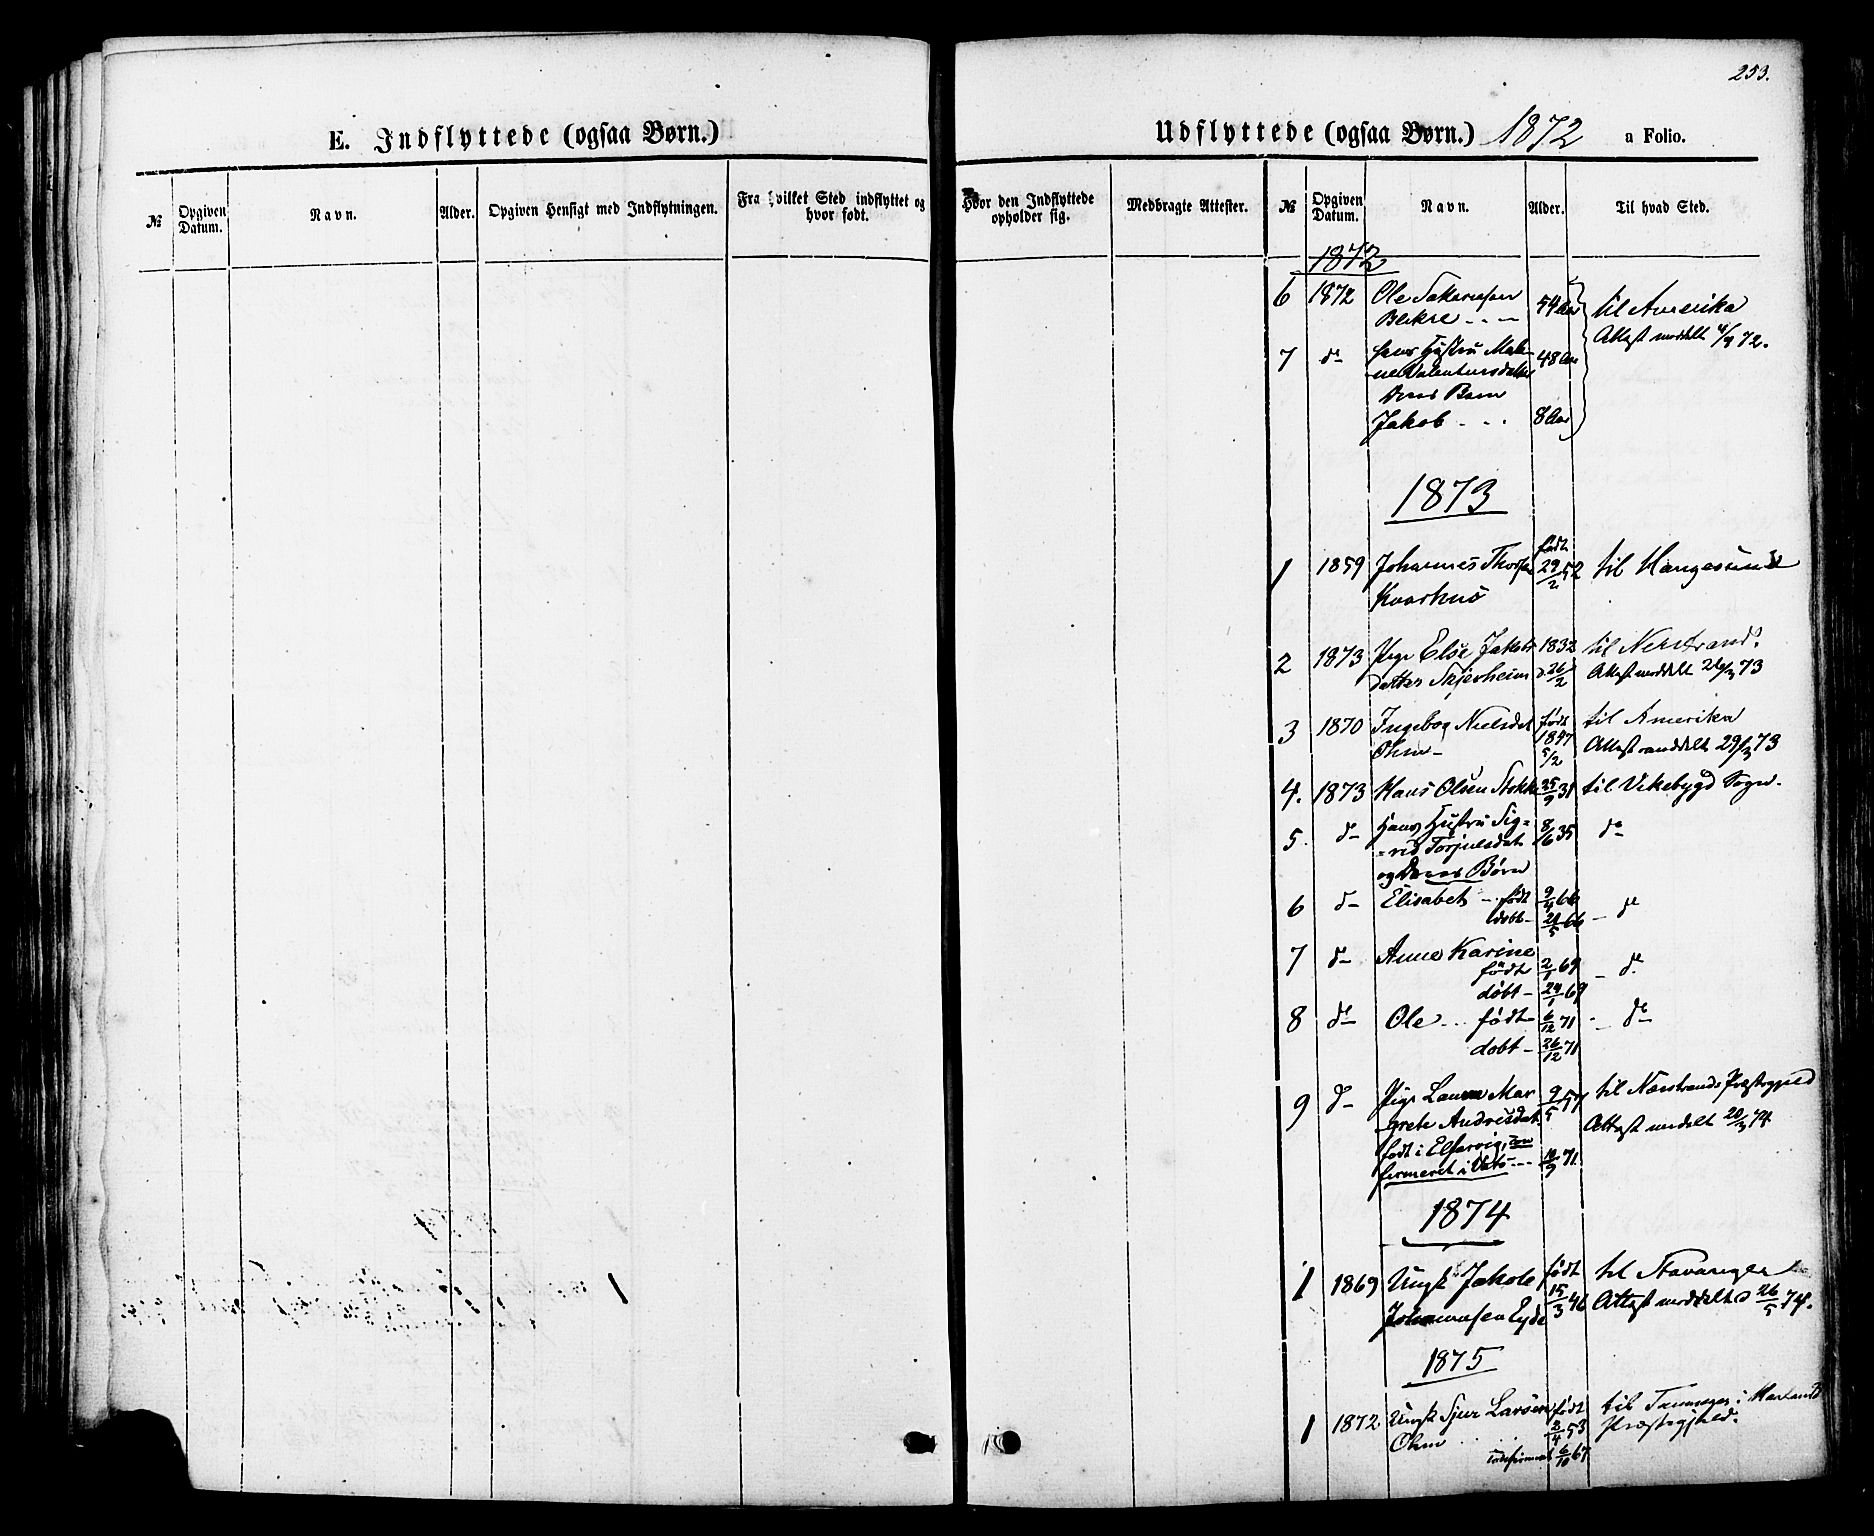 253.
E. Indflyttede (ogsaa Børn.)
№
Opgiven Datum.
Navn.
Alder.
Opgiven Hensigt med Indflytningen.
Fra hvilket Sted indflyttet og hvor født.
Hvor den Indflyttede opholder sig.
Medbragte Attester.
Udflyttede (ogsaa Børn.) 1872 a Folio.
№
Opgiven Datum.
Navn.
Alder.
Til hvad Sted.
1872
6 1872 Ole 54 Aar til Amerika
Attest meddelt 4/4 72.
7 do hans Hustru 48 Aar
Deres Barn
Jakob - - - 8 Aar
1873
født
1 1859 Johannes 29/2 52 til Haugesund
Kvarhus
2 1873 Pige Else Jakobs 1832 til Nerstrand.
datter Skjerheim d. 26/2 Attest meddelt 26/3 73
3 1870 Ingebog Nielsdat født 1847 til Amerika
Ohm - 5/2 Attest meddelt 29/3 73
4. 1873 Hans Olsen Stokke 25/9 31 til Vikebygd Sogn.
5. do Hans Hustru Sig= 8/6 35 do
=rid Torjulsdat
og Deres Børn
6 do Elisabet - født 9/4 66
døbt - 21/5 66 - do
7 do Anne Karine
født 2/1 69 - do
døbt - 24/1 69
8 do Ole - - født 6/12 71 - do
døbt - 26/12 71
9 do Pige Laura Mar 9/5 57 til Nærstrands Præstegjeld
grete Andrisdat. Attest meddelt 20/3 74
født i con
firmeret i Vats - - - 10/9 71.
1874
1 1869 Ungk Jakob født til Stavanger
Johannesen Eyde 15/3 46 Attest meddelt d 26/5 74.
1875
1 1872. Ungk Sjur Larsen født til i
Ohm . . . . 2/4 53 Præstegjeld.
confirmert 6/10 67